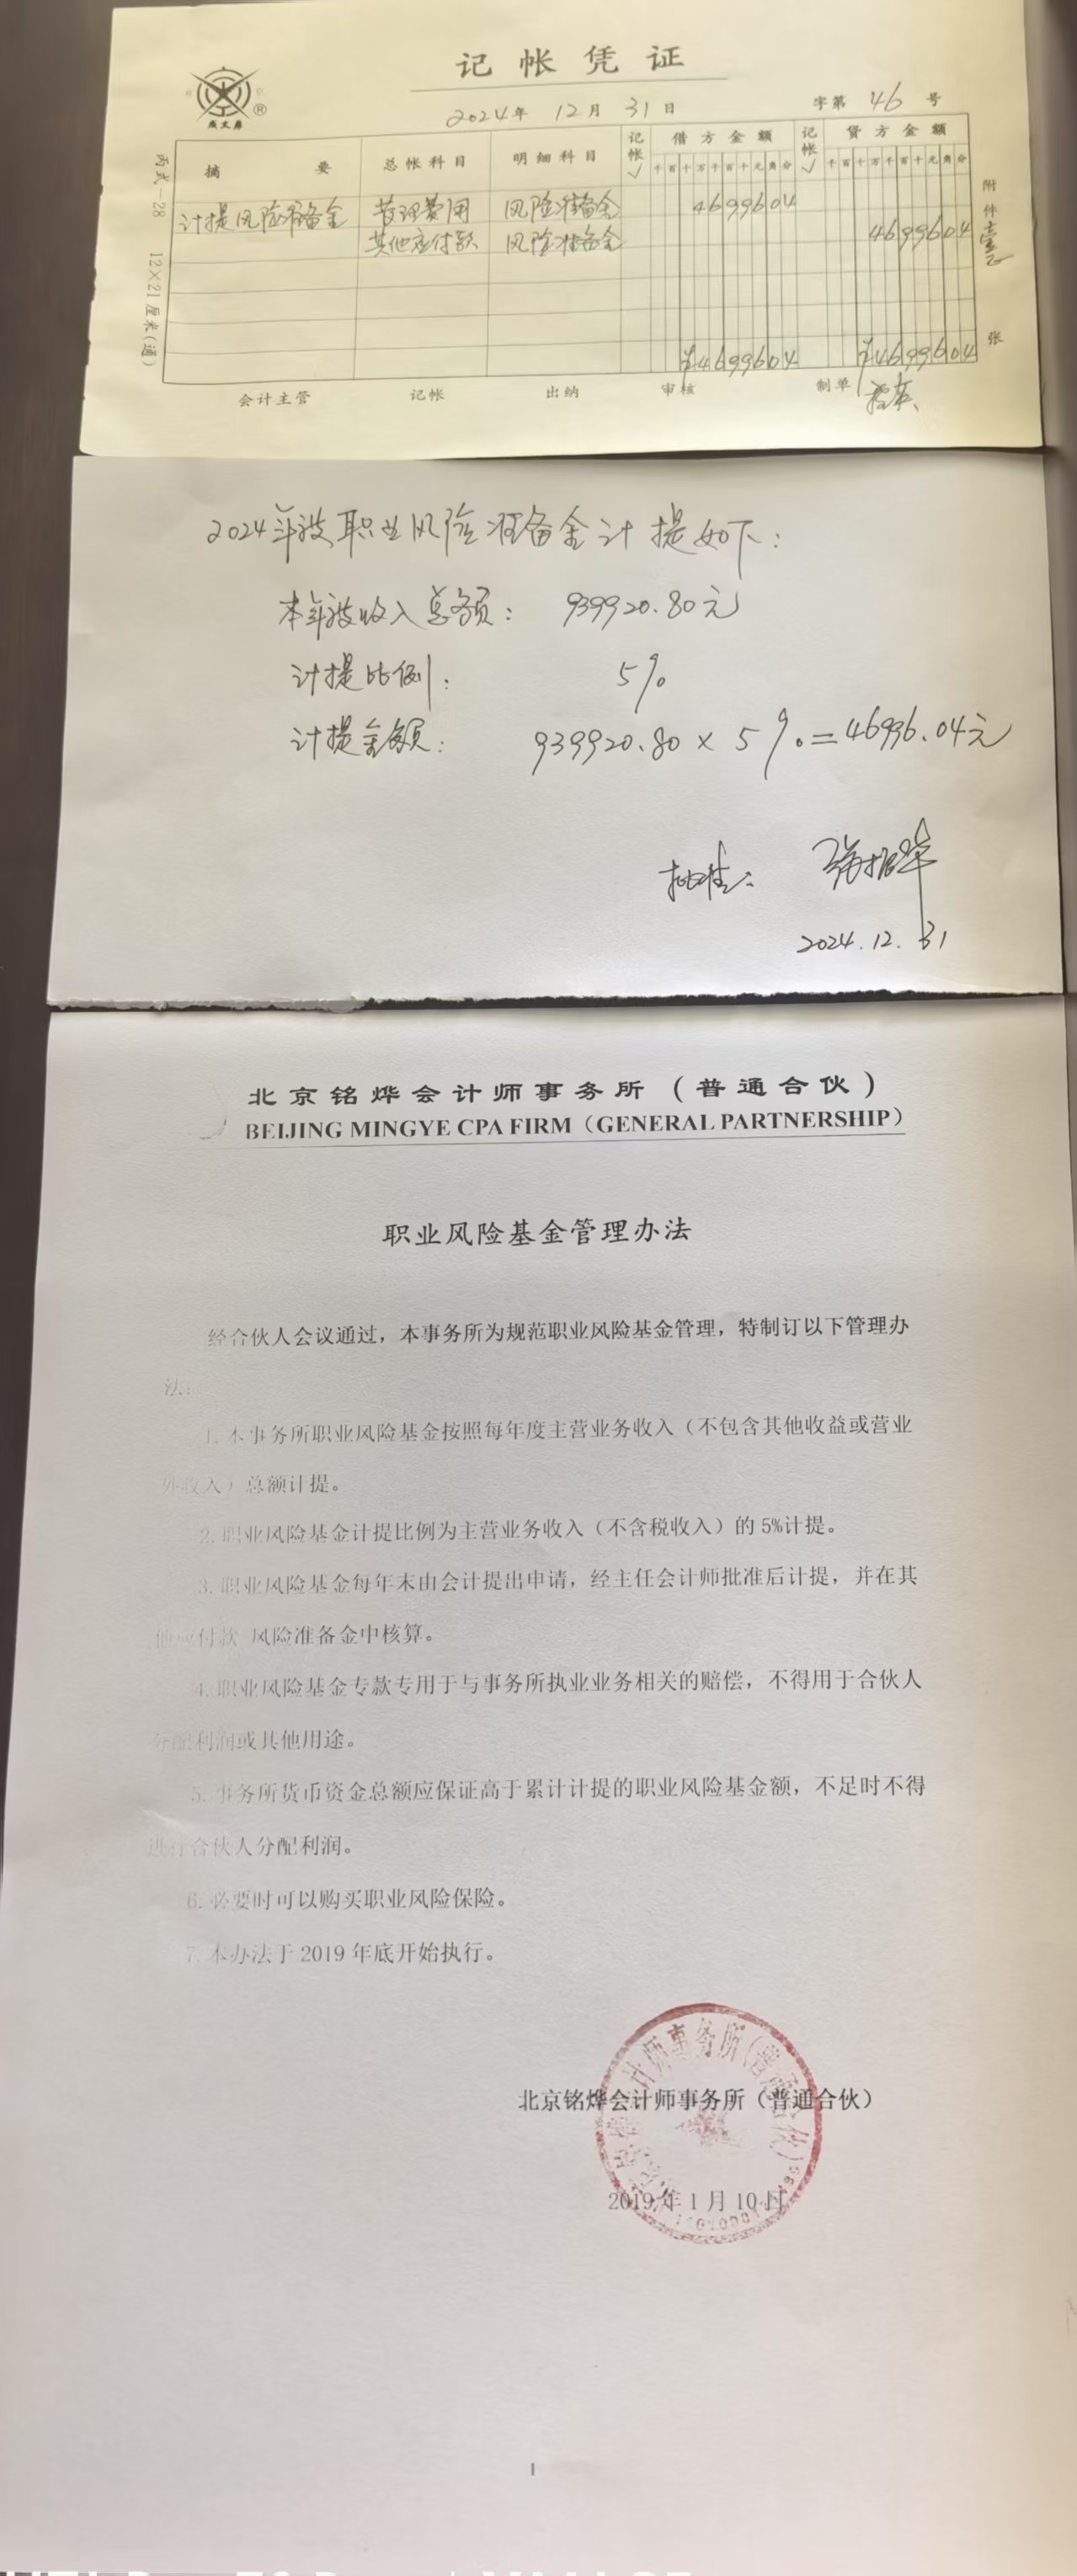 记帐凭证
2024年 12月 31日
字第 46 号
成文厚
®
丙式-28 12×21厘米(通)
摘要 总帐科目 明细科目 记帐✓ 借方金额 记帐✓ 贷方金额
千百十万千百十元角分 千百十万千百十元角分
计提风险准备金 管理费用 风险准备金 4699604
其他应付款 风险准备金 4699604
¥4699604 ¥4699604
附件壹张
会计主管 记帐 出纳 审核 制单
2024年度职业风险准备金计提如下:
本年度收入总额: 939920.80元
计提比例: 5%
计提金额: 939920.80 × 5% = 46996.04元
批准:
2024.12.31
北京铭烨会计师事务所(普通合伙)
BEIJING MINGYE CPA FIRM(GENERAL PARTNERSHIP)
职业风险基金管理办法
经合伙人会议通过,本事务所为规范职业风险基金管理,特制订以下管理办
法:
1.本事务所职业风险基金按照每年度主营业务收入(不包含其他收益或营业
外收入)总额计提。
2.职业风险基金计提比例为主营业务收入(不含税收入)的5%计提。
3.职业风险基金每年末由会计提出申请,经主任会计师批准后计提,并在其
他应付款-风险准备金中核算。
4.职业风险基金专款专用于与事务所执业业务相关的赔偿,不得用于合伙人
分配利润或其他用途。
5.事务所货币资金总额应保证高于累计计提的职业风险基金额,不足时不得
进行合伙人分配利润。
6.必要时可以购买职业风险保险。
7.本办法于2019年底开始执行。
北京铭烨会计师事务所(普通合伙)
2019年1月10日
1